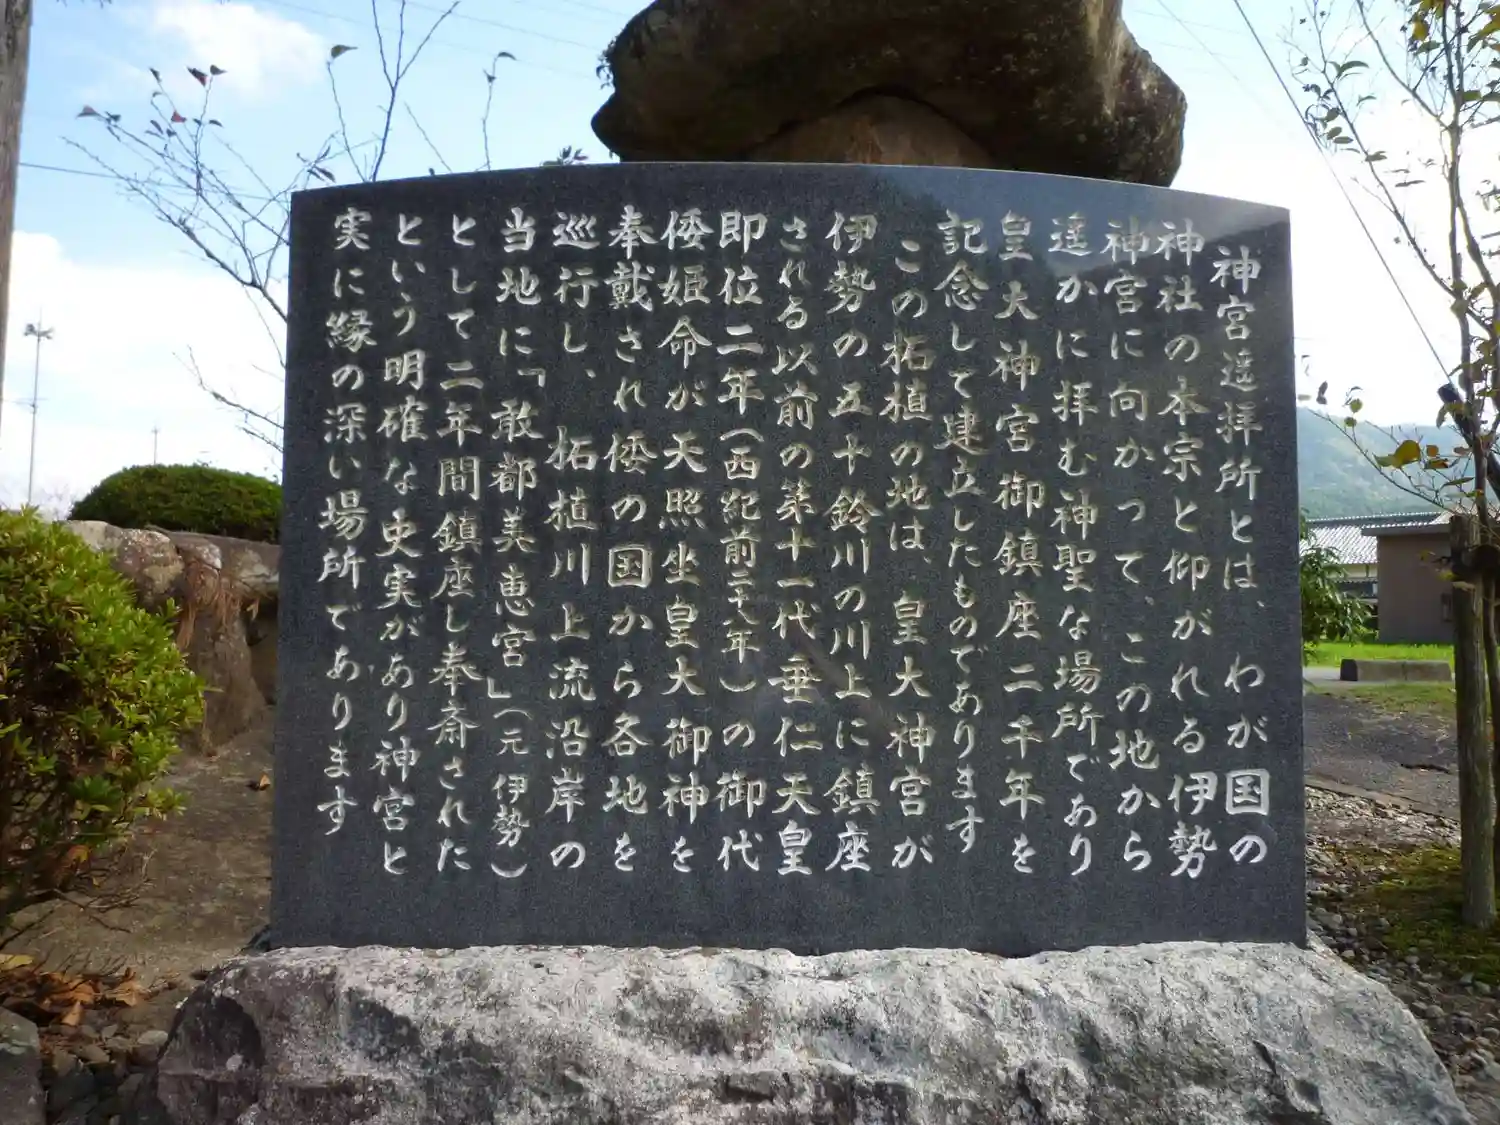 神宮遥拝所とは、わが国の
神社の本宗と仰がれる伊勢
神宮に向かって、この地から
遥かに拝む神聖な場所であり
皇大神宮御鎮座二千年を
記念して建立したものであります
この柘植の地は、皇大神宮が
伊勢の五十鈴川の川上に鎮座
される以前の第十一代垂仁天皇
即位二年(西紀前二十八年)の御代
倭姫命が天照坐皇大御神を
奉戴され倭の国から各地を
巡行し、柘植川上流沿岸の
当地に「敢都美恵宮」(元伊勢)
として二年間鎮座し奉斎された
という明確な史実があり神宮と
実に縁の深い場所であります